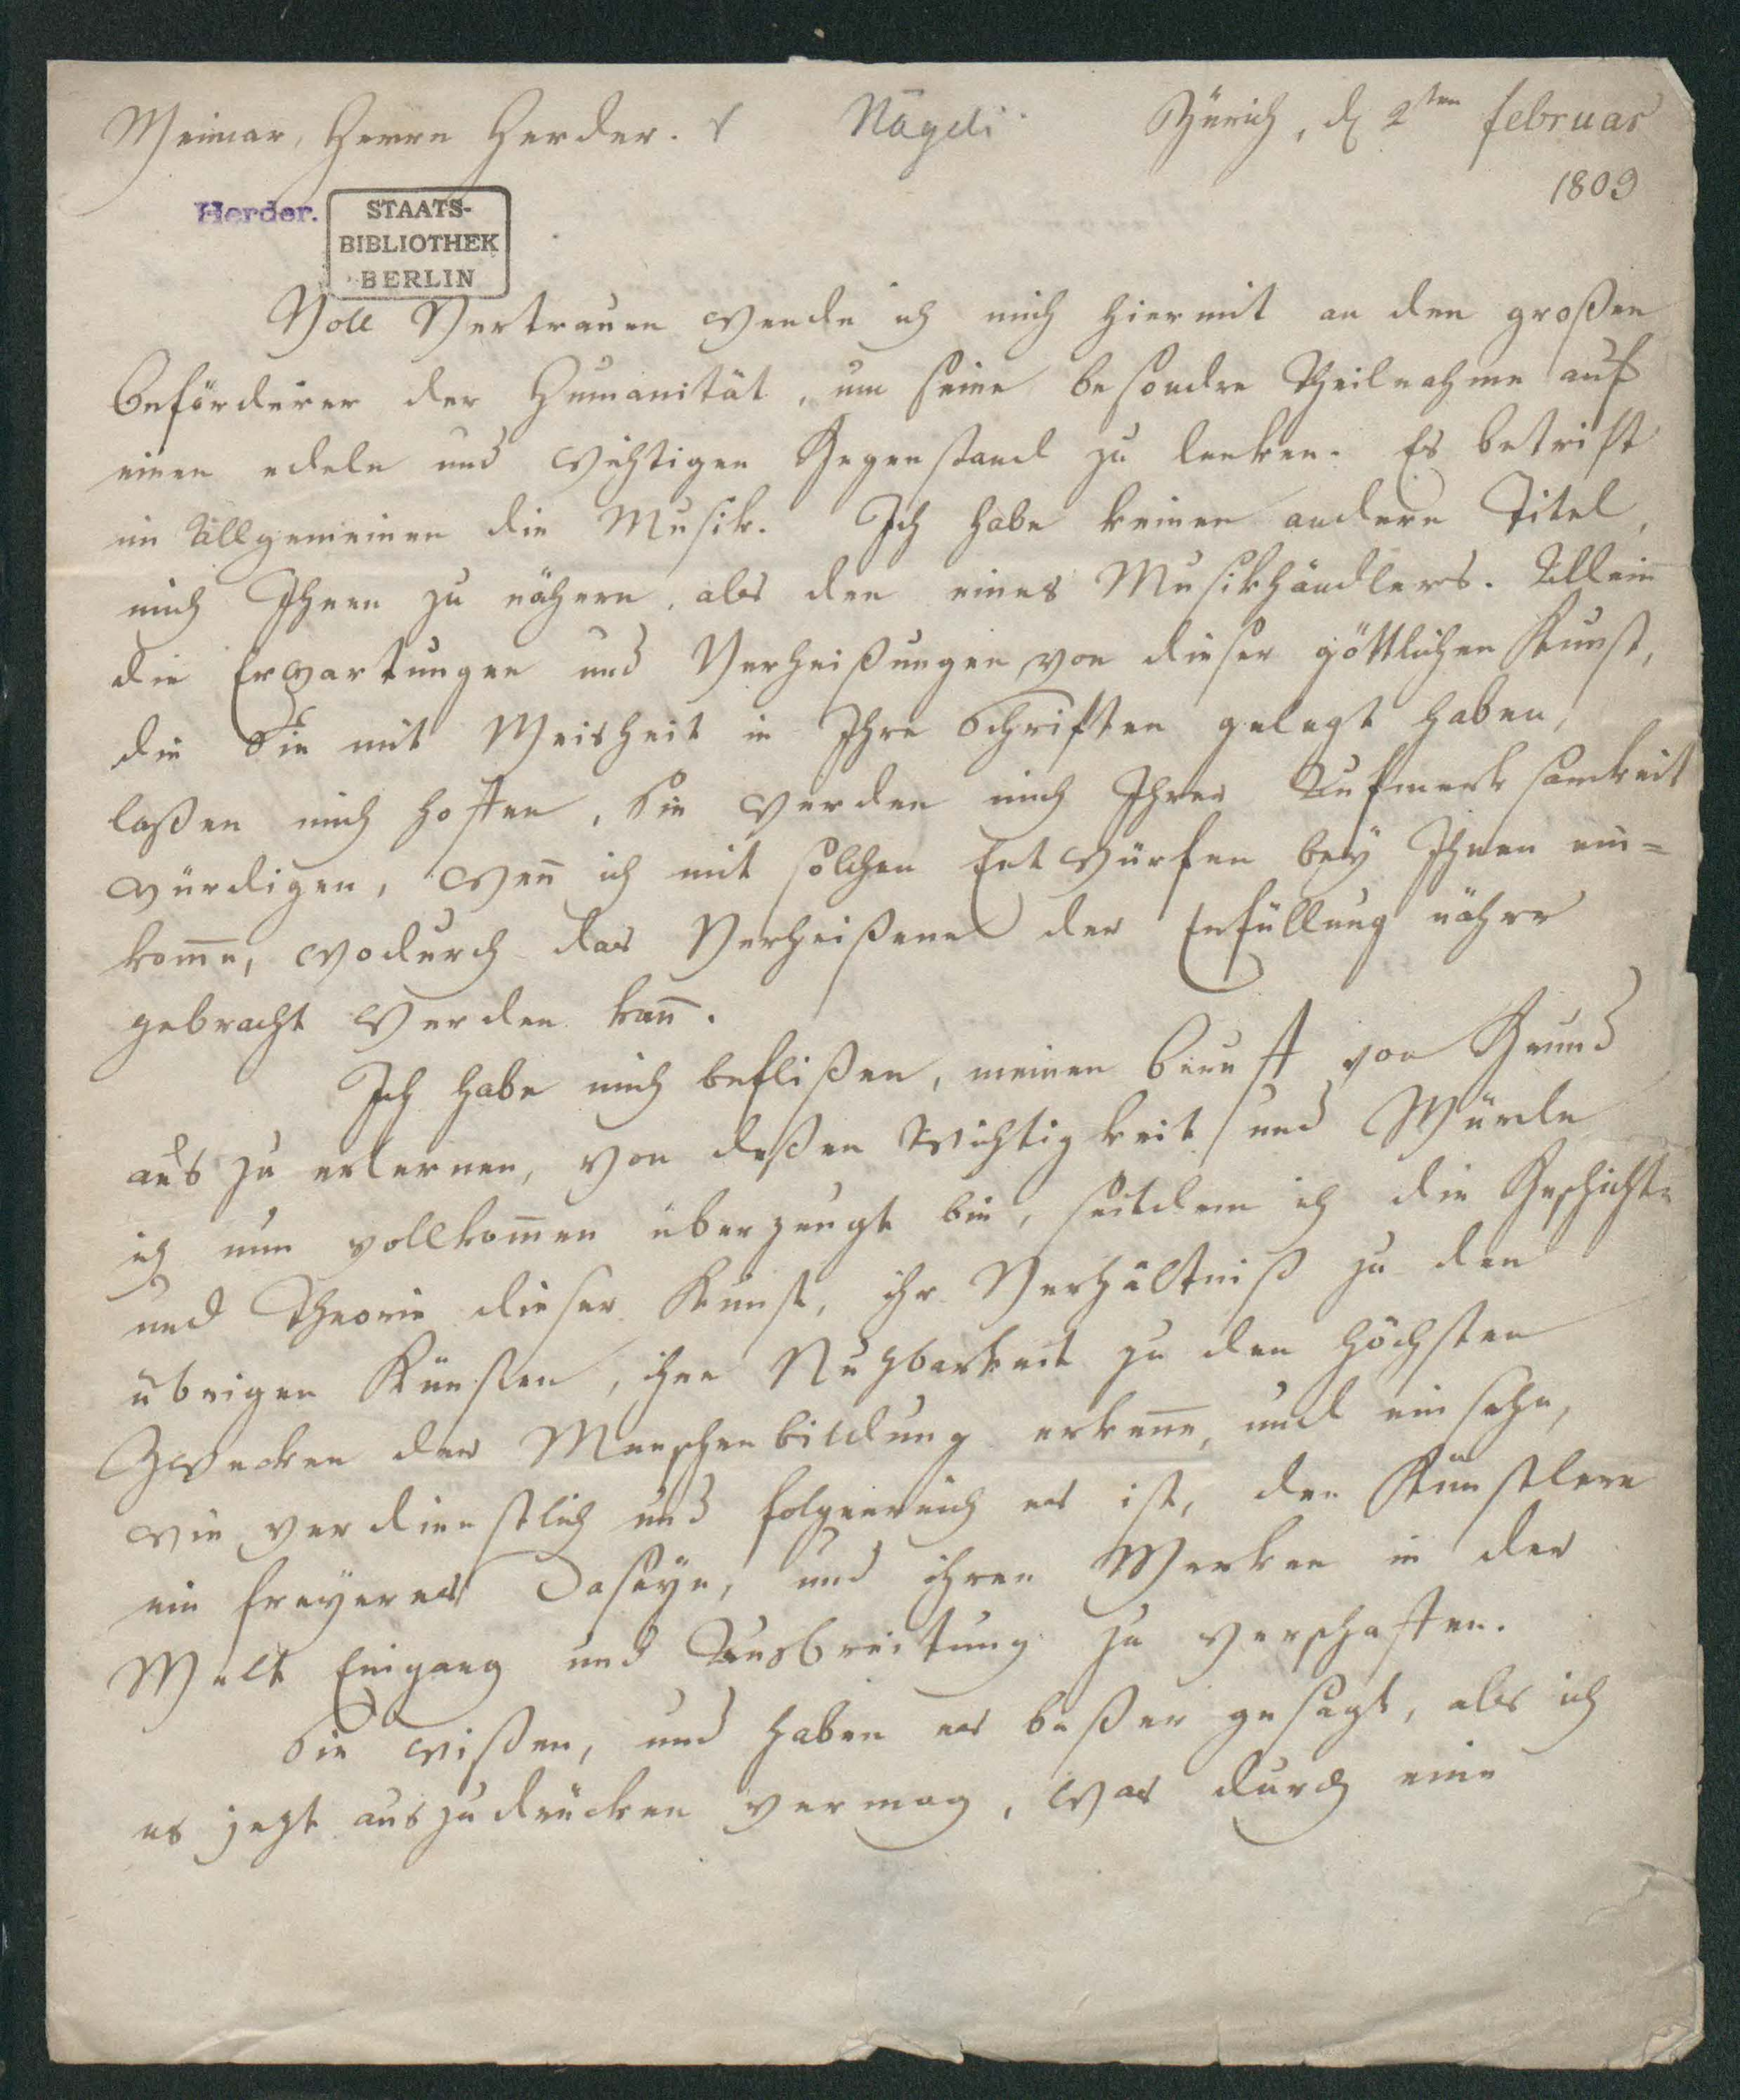 Weimar, Herrn Herder. Nägeli Zürich, d 2ten februar
1803
Herder.
STAATS-
BIBLIOTHEK
BERLIN
Voll Vertrauen wende ich mich hiermit an den großen
Beförderer der Humanität, um seine besondre Theilnahme auf
einen edeln und wichtigen Gegenstand zu lenken. Es betrift
im Allgemeinen die Musik. Ich habe keinen andern Titel,
mich Ihnen zu nähern, als den eines Musikhändlers. Allein
die Erwartungen und Verheißungen von dieser göttlichen Kunst,
die Sie mit Weisheit in Ihre Schriften gelegt haben,
laßen mich hoffen, Sie werden mich Ihrer Aufmerksamkeit
würdigen, weñ ich mit solchen Entwürfen bey Ihnen ein=
kom̄e, wodurch das Verheißene der Erfüllung näher
gebracht werden kañ.
Ich habe mich beflißen, meinen Beruff von Grund
aus zu erlernen, von deßen Wichtigkeit und Würde
ich nun vollkom̄en überzeugt bin, seitdem ich die Geschichte
und Theorie dieser Kunst, ihr Verhältniß zu den
übrigen Künsten, ihre Nuzbarkeit zu den höchsten
Zwecken der Menschenbildung erkeñe, und einsehe,
wie verdienstlich und folgenreich es ist, den Künstlern
ein freyeres Daseyn, und ihren Werken in der
Welt Eingang und Ausbreitung zu verschaffen.
Sie wißen, und haben es beßer gesagt, als ich
es jezt auszudrücken vermag, was durch eine